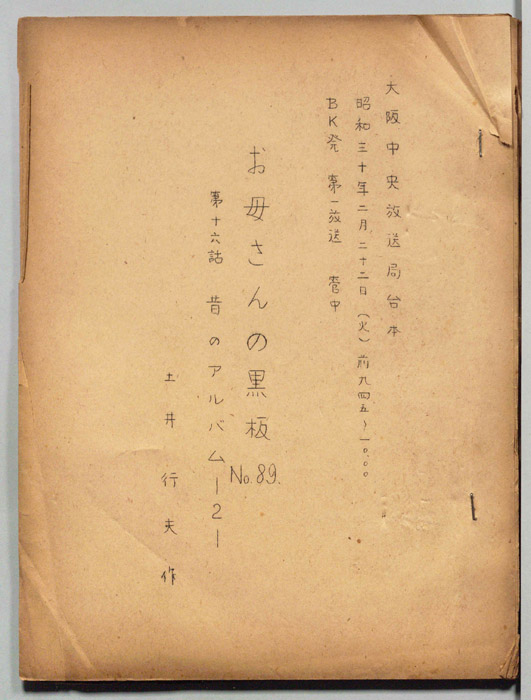 大阪中央放送局台本
昭和三十年二月二十二日(火)前九四五〜一〇.〇〇
BK発 第一放送 管中
お母さんの黒板 No.89.
第十六話 昔のアルバム―2―
土井行夫作